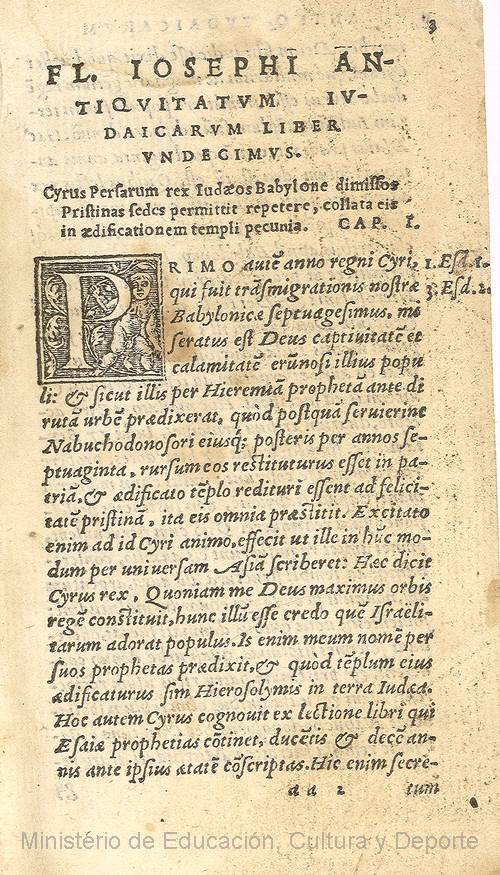 3
FL. IOSEPHI AN-
TIQVITATVM IV-
DAICARVM LIBER
VNDECIMVS.
Cyrus Persarum rex Iudæos Babylone dimissos
Pristinas sedes permittit repetere, collata eis
in ædificationem templi pecunia. CAP. I.
PRIMO autē anno regni Cyri, 1. Esd. 1.
qui fuit trāsmigrationis nostræ 3. Esd. 2.
Babylonicæ septuagesimus, mi
seratus est Deus captiuitatē et
calamitatē erūnosi illius popu
li: & sicut illis per Hieremiā prophetā ante di
rutā urbē prædixerat, quòd postquā seruierint
Nabuchodonosori eiusq́; posteris per annos se-
ptuaginta, rursum eos restituturus esset in pa-
triā, & ædificato tēplo redituri essent ad felici-
tatē pristinā, ita eis omnia præstitit. Excitato
enim ad id Cyri animo, effecit ut ille in hūc mo-
dum per uniuersam Asiā scriberet: Hæc dicit
Cyrus rex, Quoniam me Deus maximus orbis
regē constituit, hunc illū esse credo quē Israëli-
tarum adorat populus. Is enim meum nomē per
suos prophetas prædixit, & quòd tēplum eius
ædificaturus sim Hierosolymis in terra Iudæa.
Hoc autem Cyrus cognouit ex lectione libri qui
Esaiæ prophetias cōtinet, ducētis & decē an-
nis ante ipsius ætatē cōscriptas. Hic enim secre-
a a 2 tum
Ministério de Educación, Cultura y Deporte